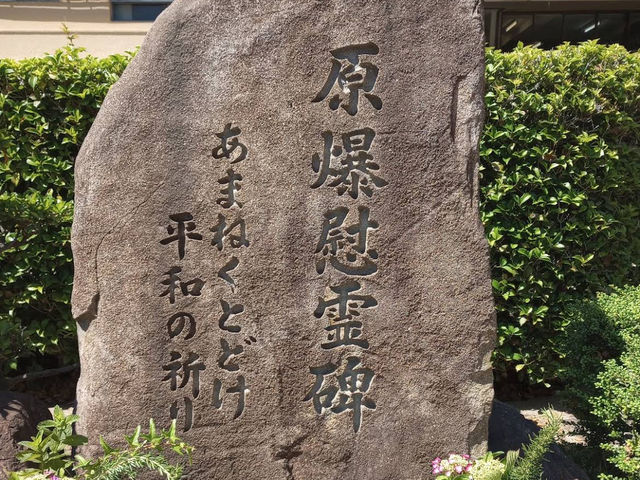 原爆慰霊碑
あまねくとどけ
平和の祈り